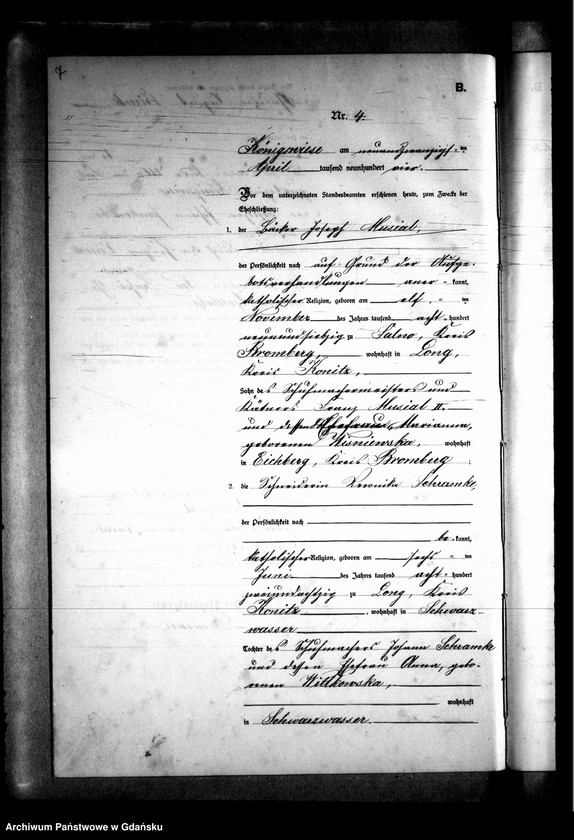 7
B.
Nr. 4.
Königswiese am neunundzwanzigs ten
April tausend neunhundert vier.
Vor dem unterzeichneten Standesbeamten erschienen heute, zum Zwecke der
Eheschließung:
1. der Bäcker Joseph Musial,
der Persönlichkeit nach auf Grund der Aufge-
botsverhandlungen aner- kannt,
katholischer Religion, geboren am elf ten
November des Jahres tausend acht hundert
neunundsiebzig zu Salno, Kreis
Bromberg, wohnhaft in Long,
Kreis Konitz,
Sohn des Schuhmachermeisters und
Kätners Franz Musial II.
und dessen Ehefrau Marianna,
geborenen Wisniewska, wohnhaft
in Eichberg, Kreis Bromberg ;
2. die Schneiderin Veronika Schramke,
der Persönlichkeit nach
be- kannt,
katholischer Religion, geboren am sechs ten
Juni des Jahres tausend acht hundert
zweiundachtzig zu Long, Kreis
Konitz, wohnhaft in Schwarz-
wasser
Tochter des Schuhmachers Johann Schramke
und dessen Ehefrau Anna, gebo-
renen Wittkowska,
wohnhaft
in Schwarzwasser.
Archiwum Państwowe w Gdańsku